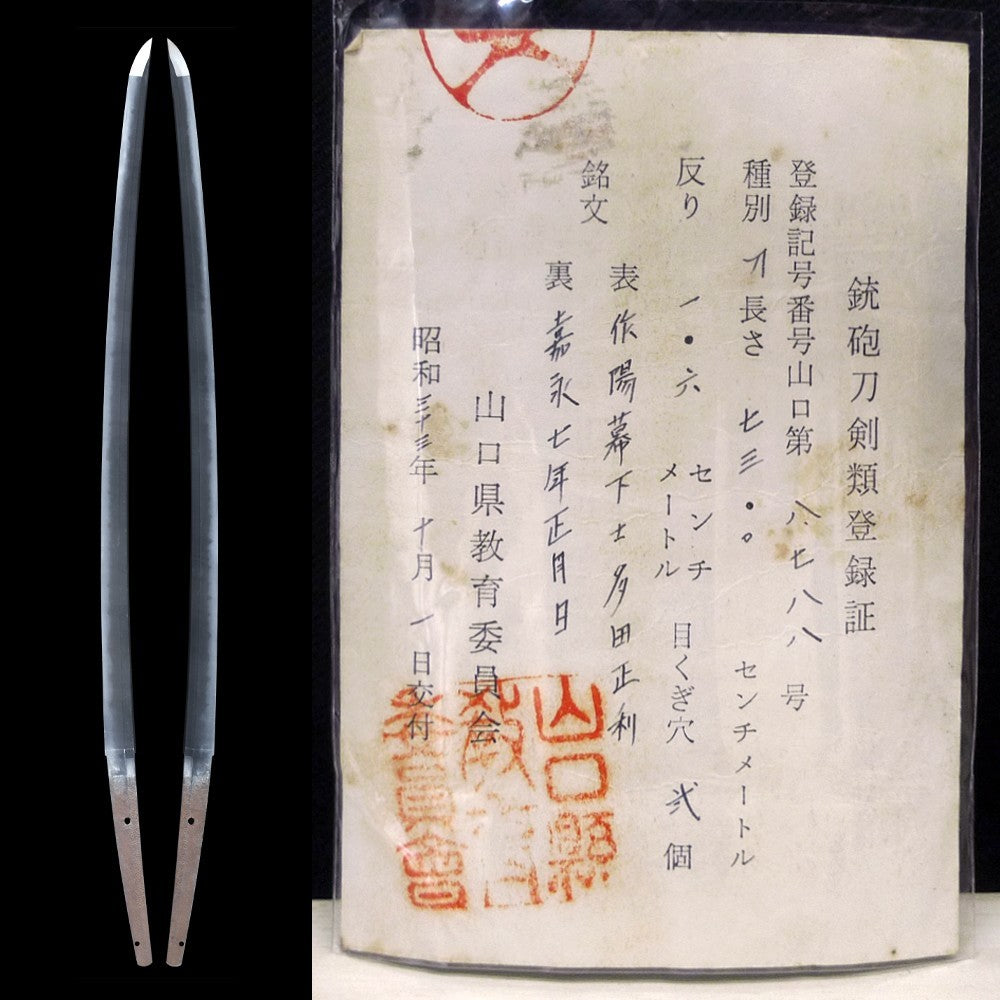 銃砲刀剣類登録証
登録記号番号山口第 八七八八 号
種別 刀 長さ 七三・〇 センチメートル
反り 一・六 センチメートル 目くぎ穴 弐 個
銘文
表 作陽幕下士多田正利
裏 嘉永七年正月日
山口県教育委員会
昭和三十三年 十月 一 日交付
山口縣
教育
委員會